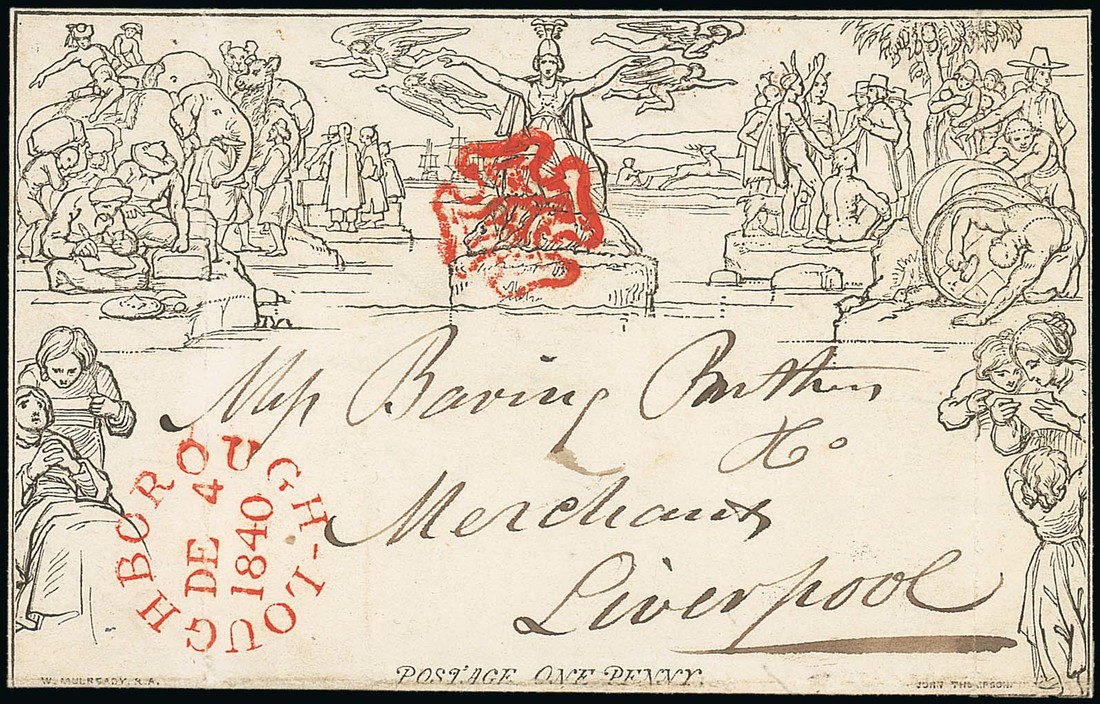 Mess Baring Brothers
& Co
Merchants
Liverpool
LOUGHBOROUGH
DE 4
1840
POSTAGE ONE PENNY.
W. MULREADY, R.A.
JOHN THOMPSON